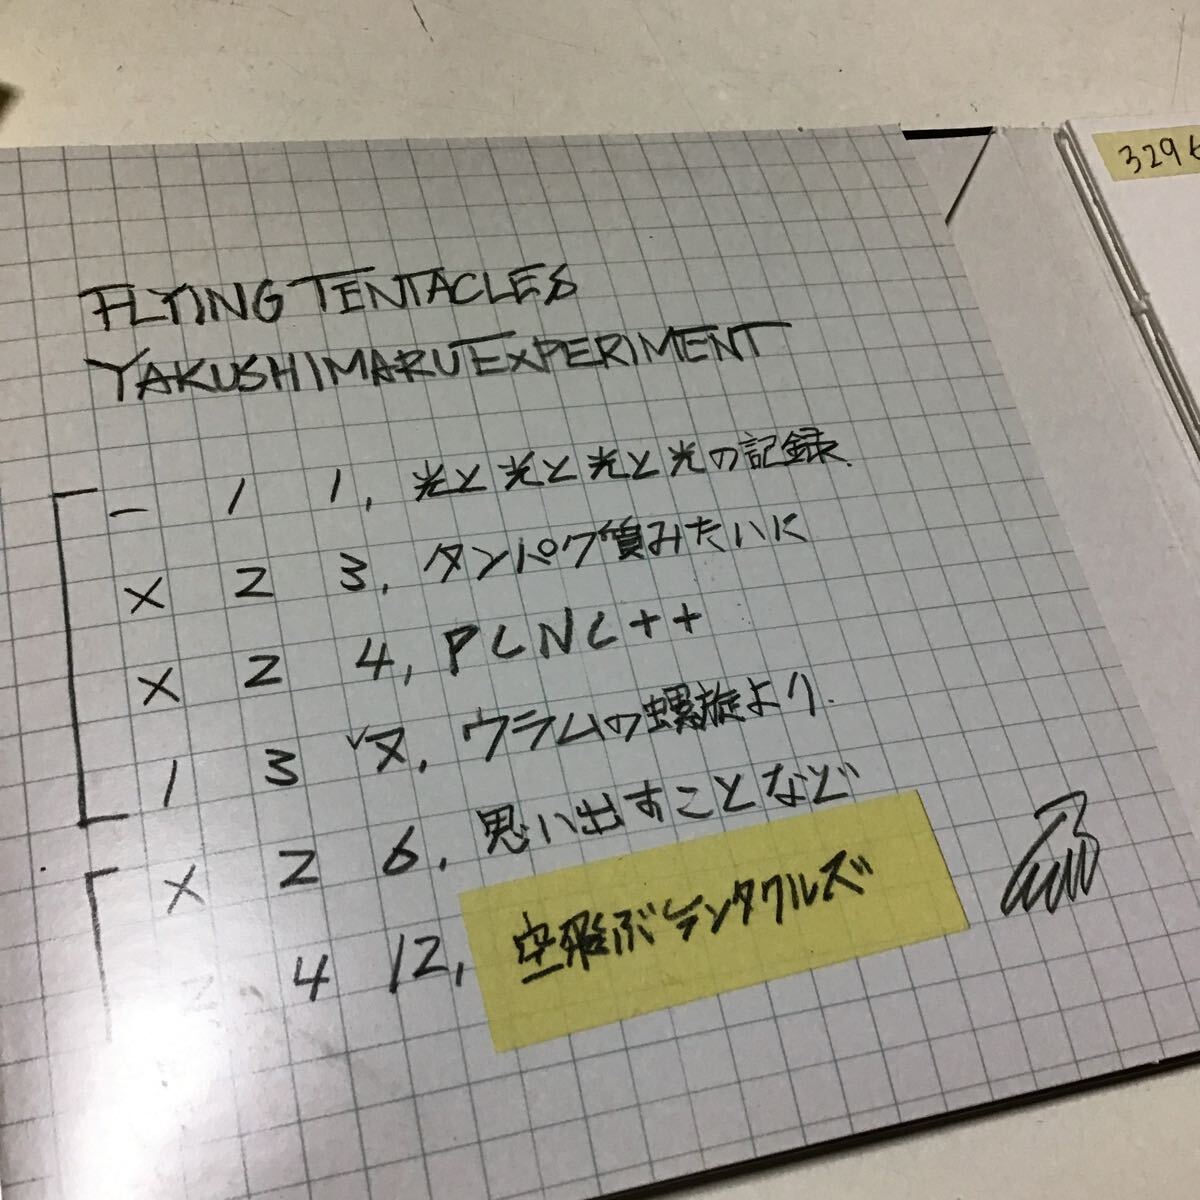 329
FLYING TENTACLES
YAKUSHIMARU EXPERIMENT
- 1 1, 光と光と光と光の記録.
× 2 3, タンパク質みたいに
× 2 4, PCNC++
1 3 ヌ, ウラムの螺旋より.
× 2 6, 思い出すことなど
2 4 12, 空飛ぶテンタクルズ